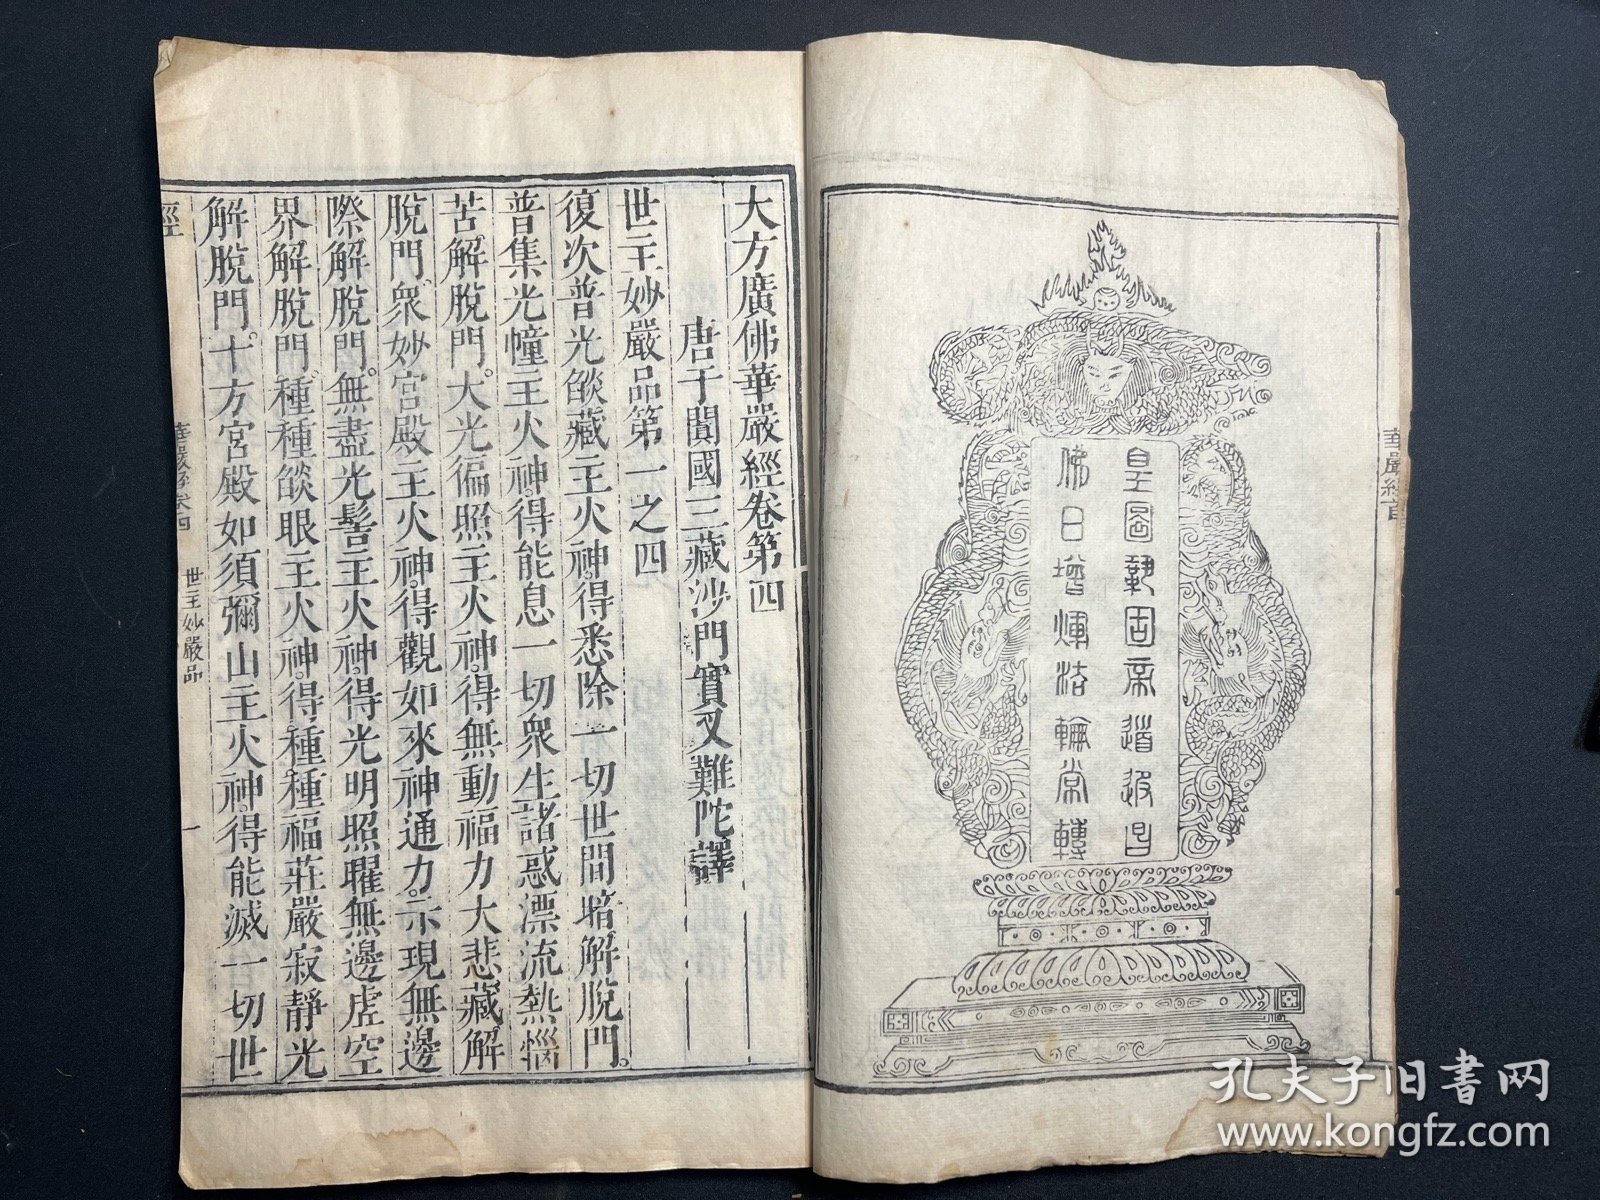 皇圖鞏固帝道遐昌
佛日增輝法輪常轉
大方廣佛華嚴經卷第四
唐于闐國三藏沙門實叉難陀譯
世主妙嚴品第一之四
復次普光燄藏主火神。得悉除一切世間暗解脫門。
普集光幢主火神。得能息一切衆生諸惑漂流熱惱
苦。解脫門。大光徧照主火神。得無動福力大悲藏。解
脫門。衆妙宮殿主火神。得觀如來神通力。示現無邊
際解脫門。無盡光髻主火神。得光明照曜無邊虛空
界解脫門。種種燄眼主火神。得種種福莊嚴寂靜光
解脫門。十方宮殿如須彌山主火神。得能滅一切世
經
華嚴經卷四
世主妙嚴品
一
孔夫子旧書网
www.kongfz.com